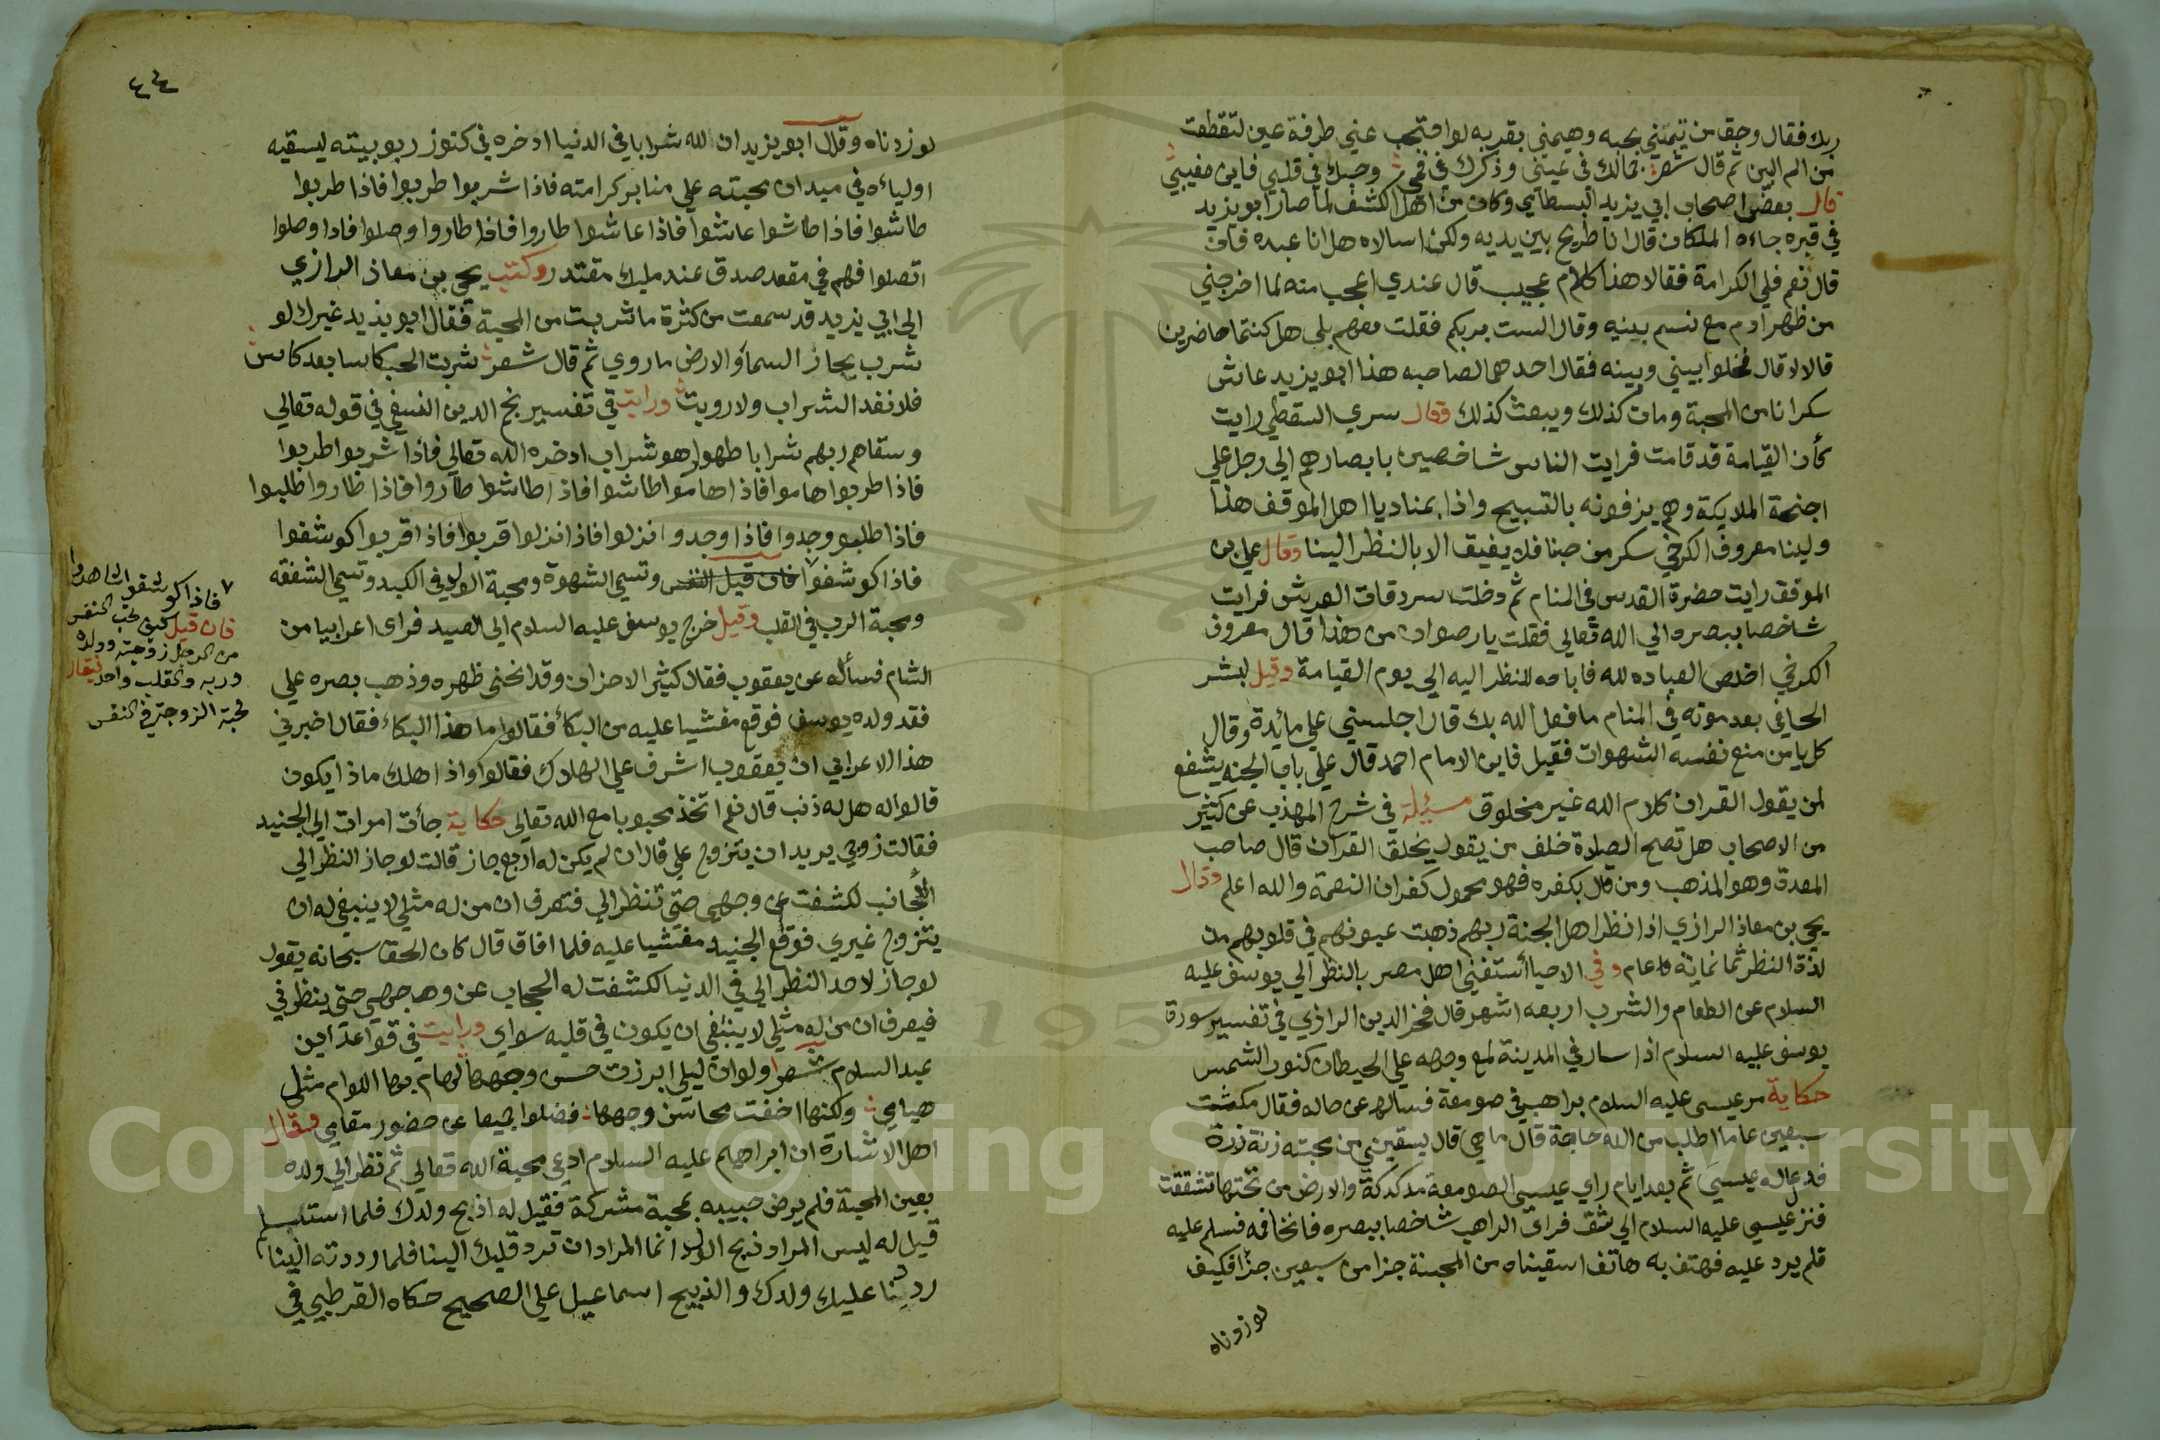 ربك فقال وحق من تيمني بحبه وهيمني بقربه لو احتجب عني طرفة عين لتقطعت
من الم البين ثم قال شعر خيالك في عيني وذكرك في فمي وحبك في قلبي فاين مغيبي
قال بعض اصحاب ابي يزيد البسطامي وكان من اهل الكشف لما صار ابو يزيد
في قبره جاءه الملكان قال انا طريح بين يديه ولكن اسالاه هل انا عبده فان
قال نعم فلي الكرامة فقالا هذا كلام عجيب قال عندي اعجب منه لما اخرجني
من ظهر ادم مع نسم بينه وقال الست بربكم فقلت معهم بلى هل كنتما حاضرين
قالا لا قال فخلوا بيني وبينه فقال احدهما لصاحبه هذا ابو يزيد عاش
سكرانا من المحبة ومات كذلك ويبعث كذلك وقال سري السقطي رايت
كأن القيامة قد قامت فرايت الناس شاخصين بابصارهم الي رجل علي
اجنحة الملايكة وهم يزفونه بالتسبيح واذا بمناد يا اهل الموقف هذا
ولينا معروف الكرخي سكر من حبنا فلا يفيق الا بالنظر الينا وقال علي بن
الموفق رايت حضرة القدس في المنام ثم دخلت سردقات العريش فرايت
شاخصا ببصره الي الله تعالي فقلت يا رضوان من هذا قال معروف
الكرخي اخلص العباده لله فاباحه للنظر اليه الي يوم القيامة وقيل لبشر
الحافي بعد موته في المنام ما فعل الله بك قال اجلسني علي مائدة وقال
كل يا من منع نفسه الشهوات فقيل فاين الامام احمد قال علي باب الجنه يشفع
لمن يقول القران كلام الله غير مخلوق مسئلة في شرح المهذب عن كثير
من الاصحاب هل تصح الصلاة خلف من يقول بخلق القران قال صاحب
العدة وهو المذهب ومن قال بكفره فهو محمول كفران النعمة والله اعلم وقال
يحي بن معاذ الرازي اذا نظر اهل الجنة ربهم ذهبت عيونهم في قلوبهم من
لذة النظر ثمانماية عام وفي الاحيا استغني اهل مصر بالنظر الي يوسف عليه
السلام عن الطعام والشرب اربعه اشهر قال فخر الدين الرازي في تفسير سورة
يوسف عليه السلام اذا سار في المدينة لمع وجهه علي الحيطان كنور الشمس
حكاية مر عيسى عليه السلام براهب في صومعة فساله عن حاله فقال مكثت
سبعين عاما اطلب من الله حاجة قال ما هي قال يسقيني من محبته زنة ذرة
فدعا له عيسي ثم بعد ايام راي عيسى الصومعة مدكدكة والارض من تحتها تشققت
فنزل عيسي عليه السلام الي شق فراي الراهب شاخصا ببصره فاتحا فه فسلم عليه
فلم يرد عليه فهتف به هاتف اسقيناه من المحبة جزا من سبعين جزا فكيف
لو زدناه
٤٤
لو زدناه وقال ابو يزيد ان لله شرابا في الدنيا ادخره في كنوز ربوبيته ليسقيه
اولياءه في ميدان محبته علي منابر كرامته فاذا شربوا طربوا فاذا طربوا
طاشوا فاذا طاشوا عاشوا فاذا عاشوا طاروا فاذا طاروا وصلوا فاذا وصلوا
اتصلوا فهم في مقعد صدق عند مليك مقتدر وكتب يحي بن معاذ الرازي
الي ابي يزيد قد سمعت من كثرة ما شربت من المحبة فقال ابو يزيد غيرك لو
شرب بحار السمآ والارض ما روي ثم قال شعر شربت الحب كاسا بعد كاس
فلا نفد الشراب ولا رويت ورايت في تفسير نجم الدين النسفي في قوله تعالي
وسقاهم ربهم شرابا طهورا هو شراب ادخره الله تعالي فاذا شربوا طربوا
فاذا طربوا هاموا فاذا هاموا طاشوا فاذا طاشوا طاروا فاذا طاروا طلبوا
فاذا طلبوا وجدوا فاذا وجدوا نزلوا فاذا نزلوا قربوا فاذا قربوا كوشفوا
فاذا كوشفوا فان قيل النفس وتسمي الشهوة ومحبة الولد في الكبد وتسمي الشفقه
ومحبة الرب في القلب وقيل خرج يوسف عليه السلام الي الصيد فراي اعرابيا من
الشام فسأله عن يعقوب فقال كثير الاحزان وقد انحني ظهره وذهب بصره علي
فقد ولده يوسف فوقع مغشيا عليه من البكأ فقالوا ما هذا البكاء فقال اخبرني
هذا الاعرابي ان يعقوب اشرف علي الهلاك فقالوا واذا هلك ماذا يكون
قالوا له هل له ذنب قال نعم اتخذ محبوبا مع الله تعالي حكاية جأت امرات الي الجنيد
فقالت زوجي يريد ان يتزوج علي قال ان لم يكن له اربع جاز قالت لو جاز النظر الي
للاجانب لكشفت عن وجهي حتي تنظر الي فتعرف ان من له مثلي لا ينبغي له ان
يتزوج غيري فوقع الجنيد مغشيا عليه فلما افاق قال كان الحق سبحانه يقول
لو جاز لاحد النظر الي في الدنيا لكشفت له الحجاب عن وجهي حتي ينظرني
فيعرف ان من له مثلي لا ينبغي ان يكون في قلبه سواي ورايت في قواعد ابن
عبد السلام شعرا ولو ان ليلى ابرزت حسن وجهها لهام بها اللوام مثل
هيامي ولكنها اخفت محاسن وجهها فضلوا جميعا عن حضور مقامي وقال
اهل الاشارة ان ابراهيم عليه السلام ادعي محبة الله تعالي ثم نظر الي ولده
بعين المحبة فلم يرض حبيبه بمحبة مشركة فقيل له اذبح ولدك فلما استسلم
قيل له ليس المراد ذبح الولد انما المراد ان ترد قلبك الينا فلما رددته الينا
رددنا عليك ولدك والذبيح اسماعيل علي الصحيح حكاه القرطبي في
فاذا كوشفوا شاهدوا
فان قيل كيف تحب النفس
من الرجل زوجته وولده
وربه والقلب واحد فيقال
محبة الزوجة في النفس
Copyright © King Saud University
1957